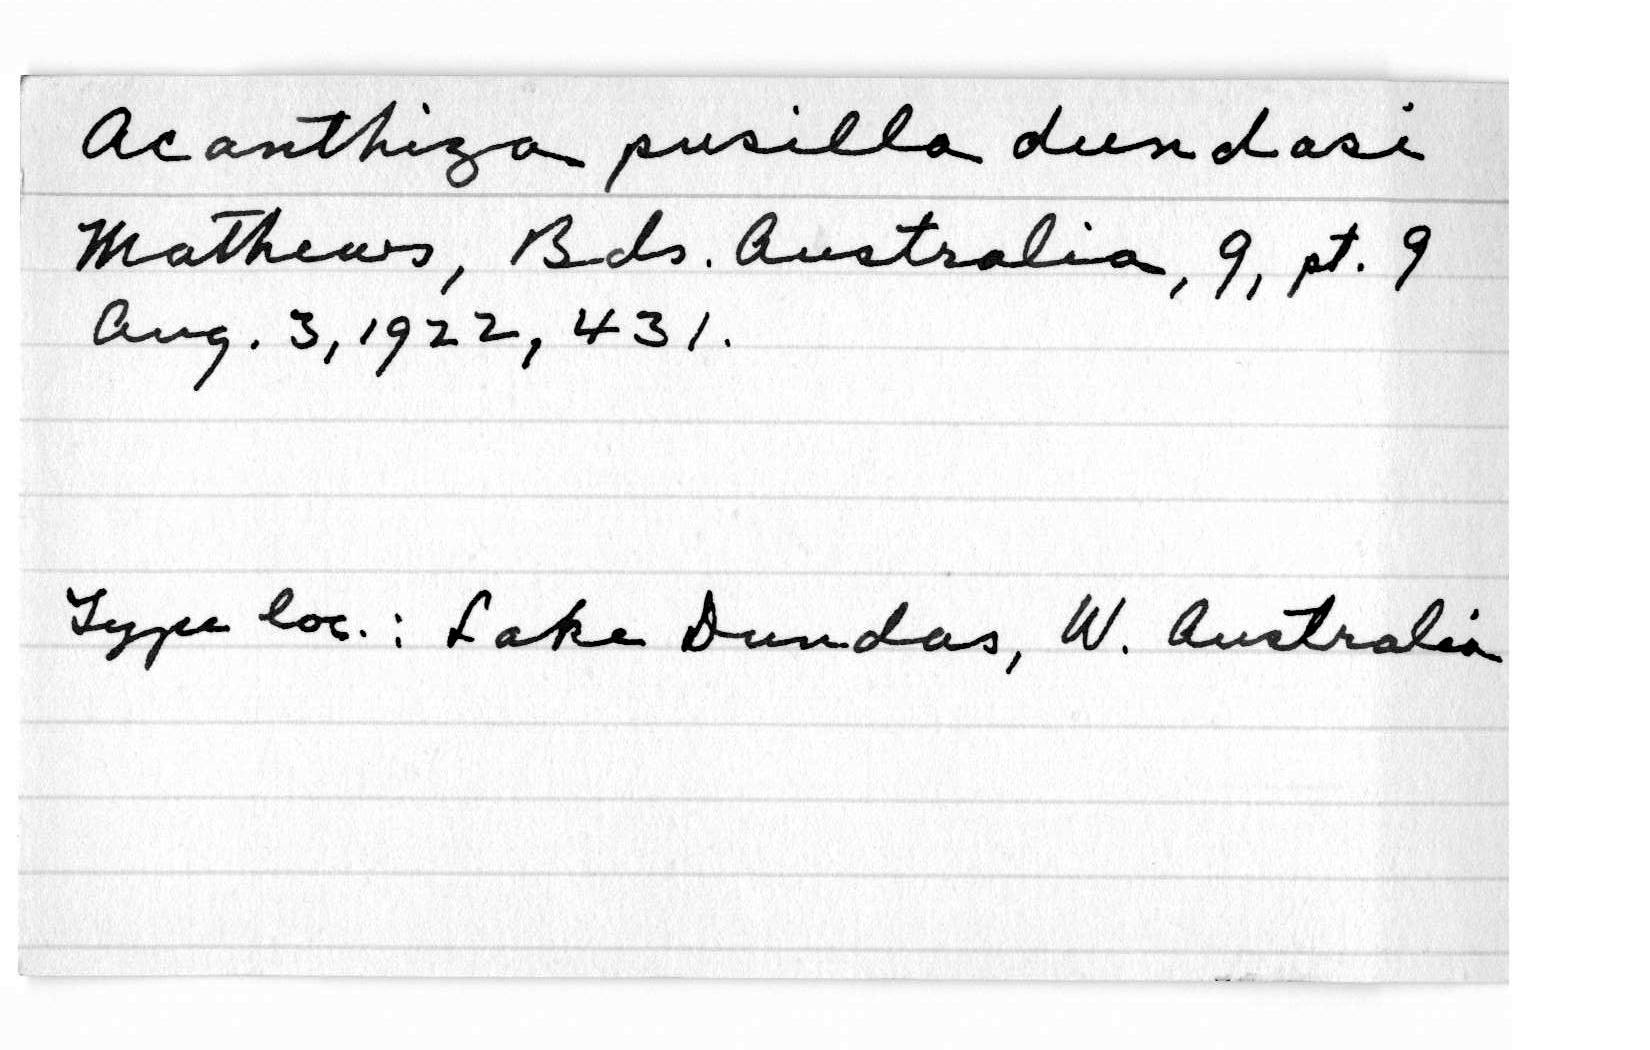 Acanthiza pusilla dundasi
Mathews, Bds. Australia, 9, pt. 9
Aug. 3, 1922, 431.
Type loc.: Lake Dundas, W. Australia